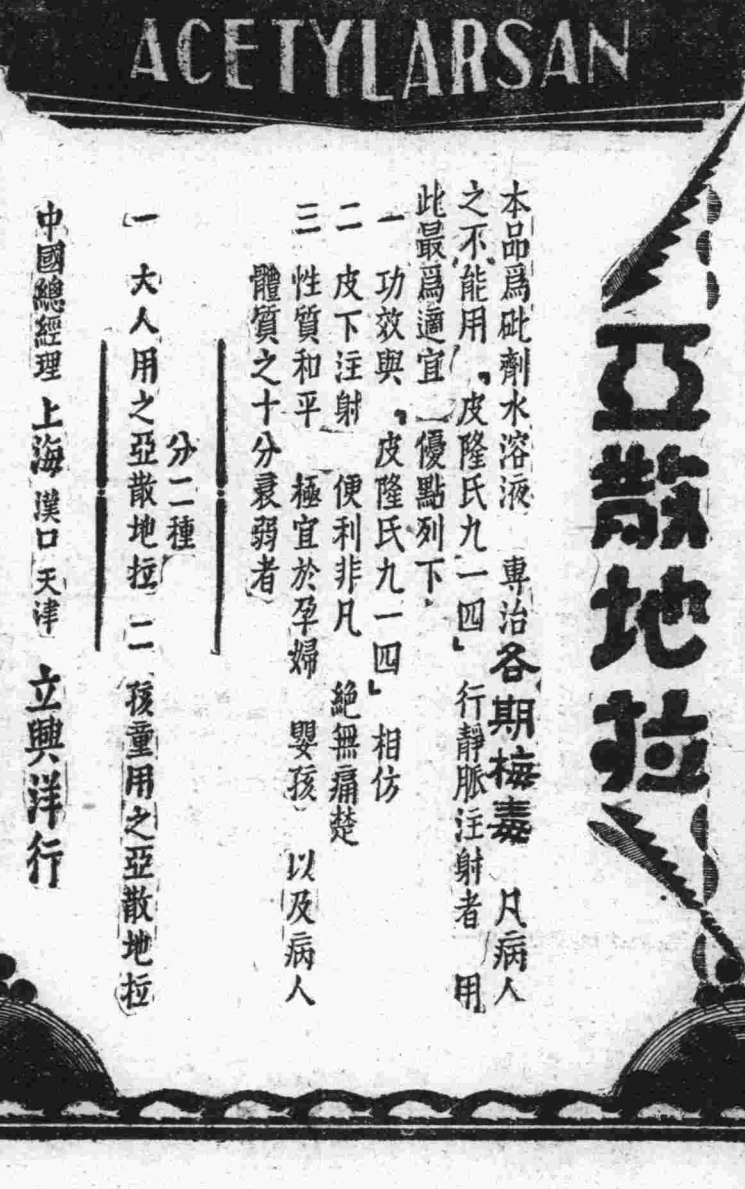 ACETYLARSAN
亞散地拉
本品爲砒劑水溶液 專治各期梅毒 凡病人
之不能用『皮隆氏九一四』行靜脈注射者 用
此最爲適宜 優點列下
一 功效與『皮隆氏九一四』相仿
二 皮下注射 便利非凡 絕無痛楚
三 性質和平 極宜於孕婦 嬰孩 以及病人
體質之十分衰弱者
分二種
一 大人用之亞散地拉 二 孩童用之亞散地拉
中國總經理 上海 漢口 天津 立興洋行